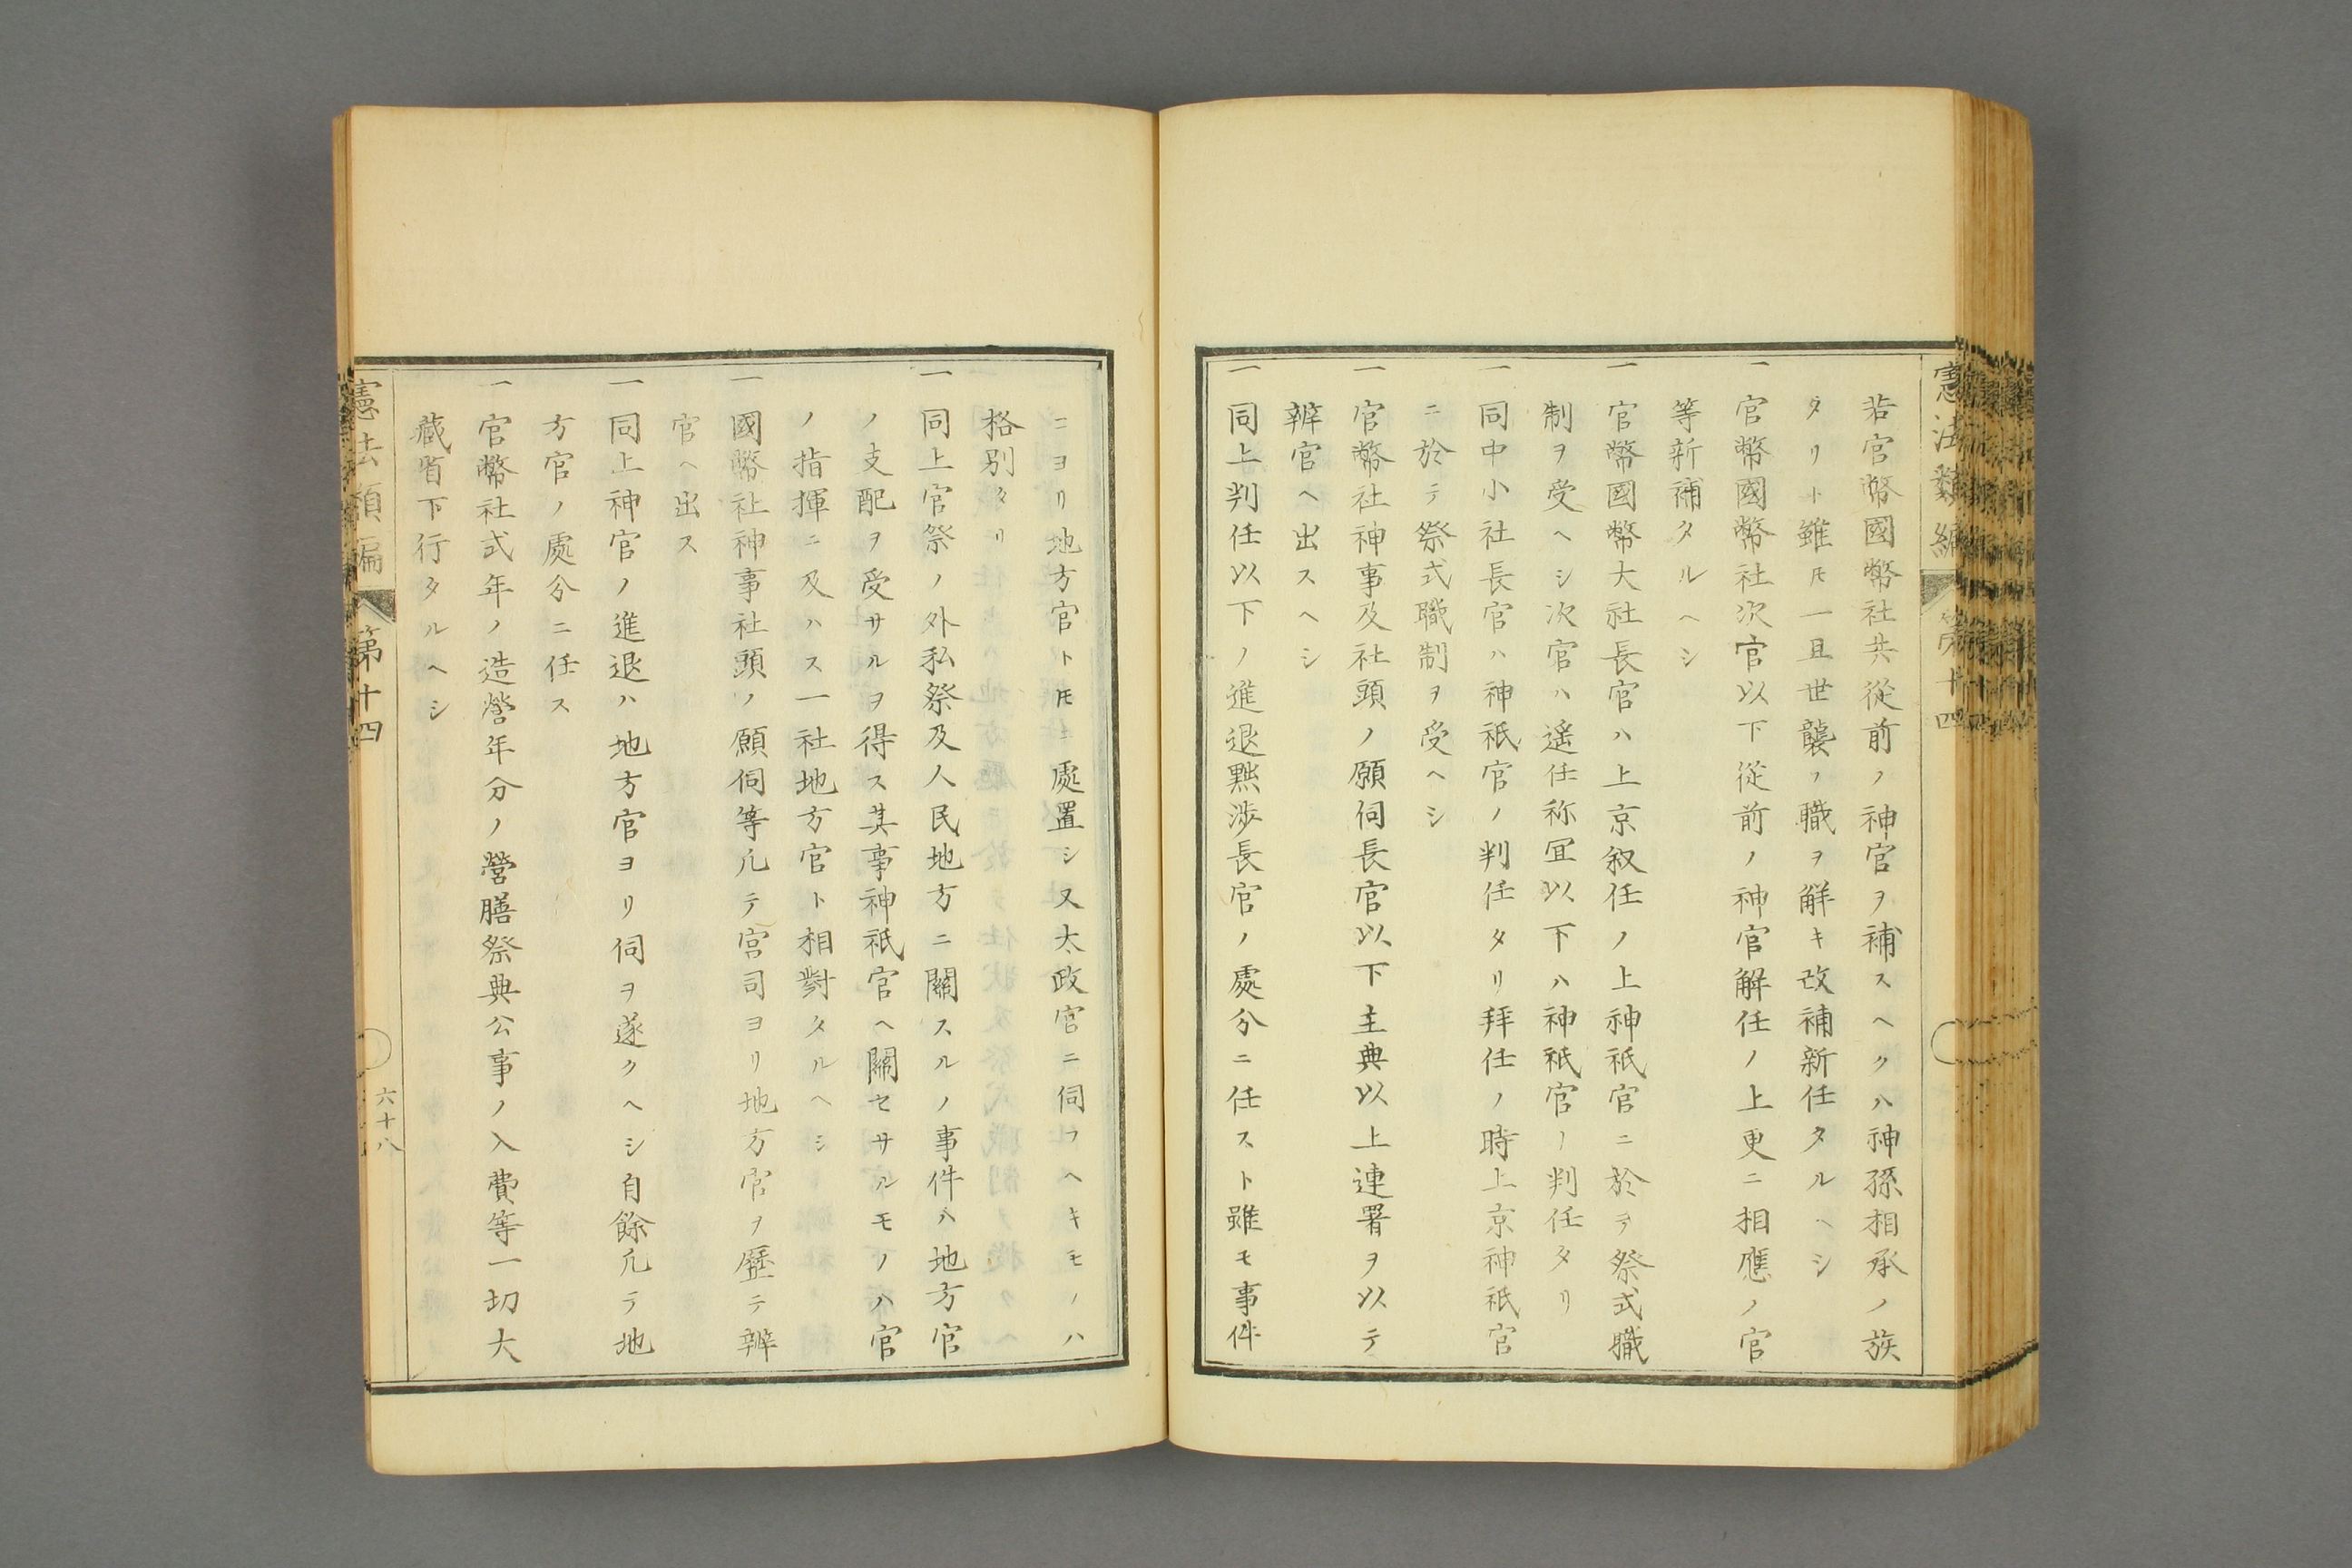 憲法類編 第十四
若官幣國幣社共從前ノ神官ヲ補スヘクハ神孫相承ノ族
タリト雖𪜈一旦世襲ノ職ヲ解キ改補新任タルヘシ
一官幣國幣社次官以下從前ノ神官解任ノ上更ニ相應ノ官
等新補タルヘシ
一官幣國幣大社長官ハ上京叙任ノ上神祇官ニ於テ祭式職
制ヲ受ヘシ次官ハ遙任称冝以下ハ神祇官ノ判任タリ
一同中小社長官ハ神祇官ノ判任タリ拜任ノ時上京神祇官
ニ於テ祭式職制ヲ受ヘシ
一官幣社神事及社頭ノ願伺長官以下主典以上連署ヲ以テ
辨官ヘ出スヘシ
一同上判任以下ノ進退黜涉長官ノ處分ニ任スト雖モ事件
ニヨリ地方官ト𪜈ニ處置シ又太政官ニ伺フヘキモノハ
格別タリ
一同上官祭ノ外私祭及人民地方ニ關スルノ事件ハ地方官
ノ支配ヲ受サルヲ得ス其事神祇官ヘ關セサルモノハ官
ノ指揮ニ及ハス一社地方官ト相對タルヘシ
一國幣社神事社頭ノ願伺等凡テ宮司ヨリ地方官ヲ歷テ辨
官ヘ出ス
一同上神官ノ進退ハ地方官ヨリ伺ヲ遂クヘシ自餘凡テ地
方官ノ處分ニ任ス
一官幣社式年ノ造營年分ノ營膳祭典公事ノ入費等一切大
藏省下行タルヘシ
憲法類編 第十四 六十八